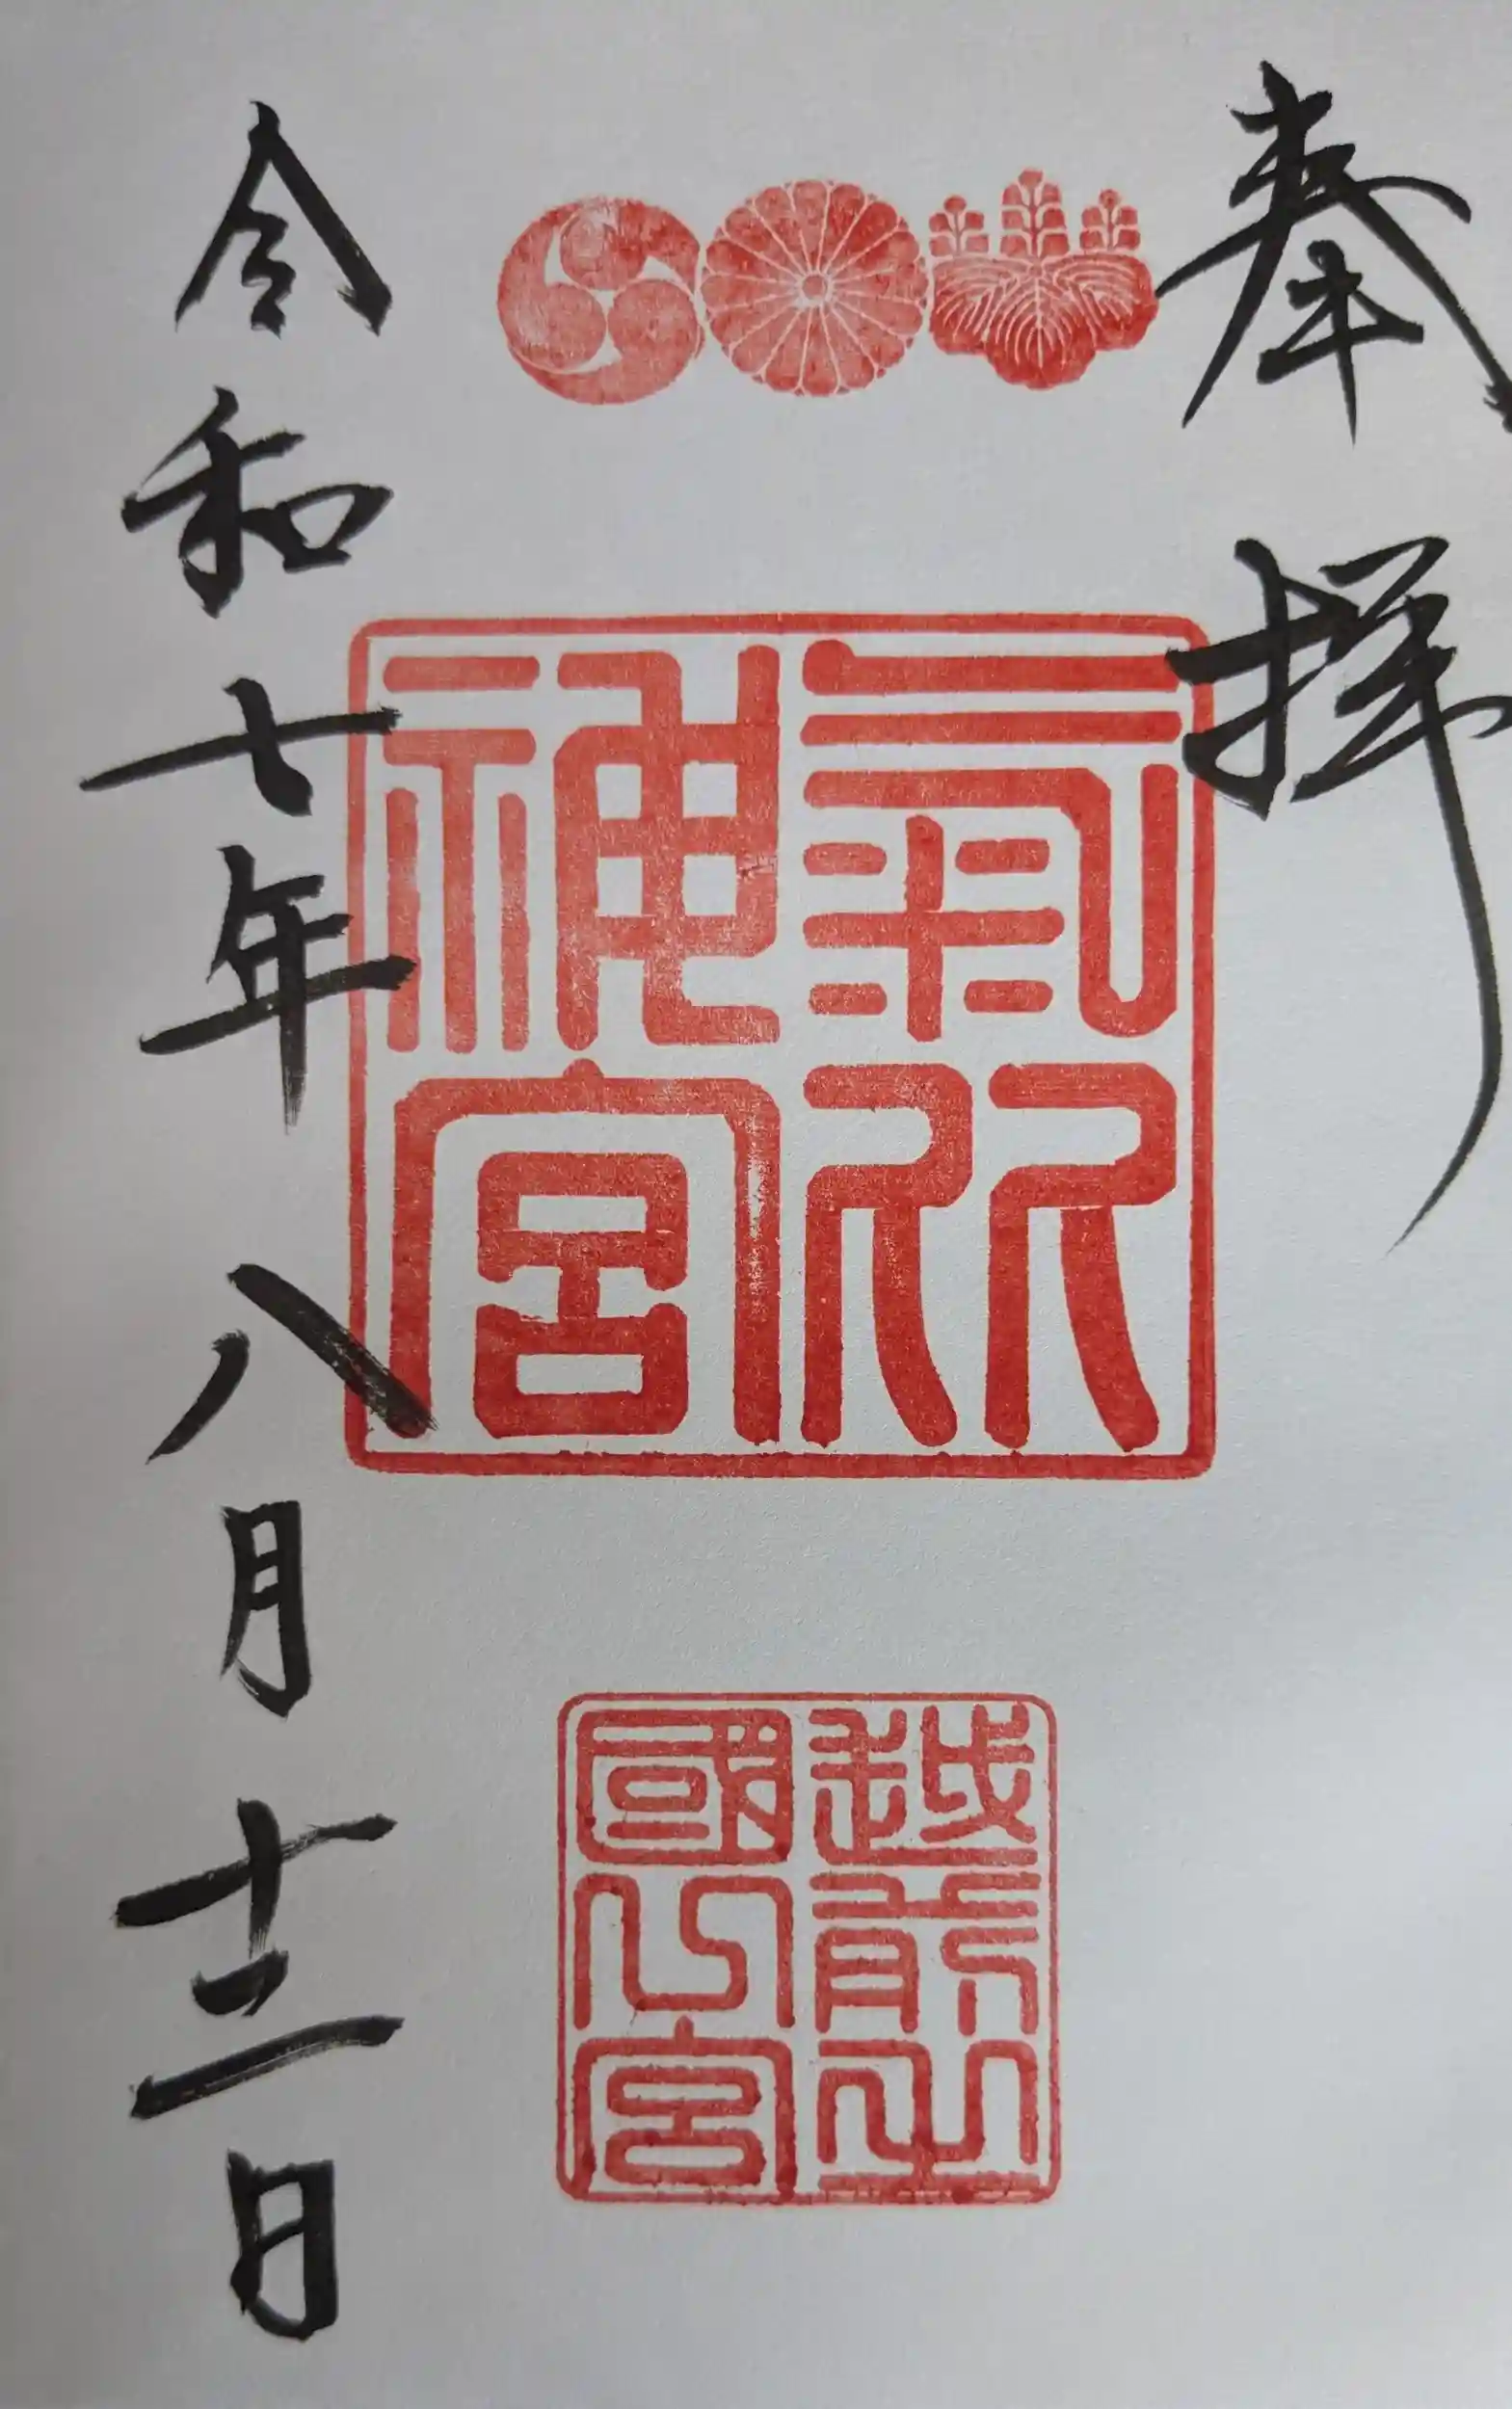 奉拝
氣比
神宮
越前之
國一宮
令和七年八月十二日